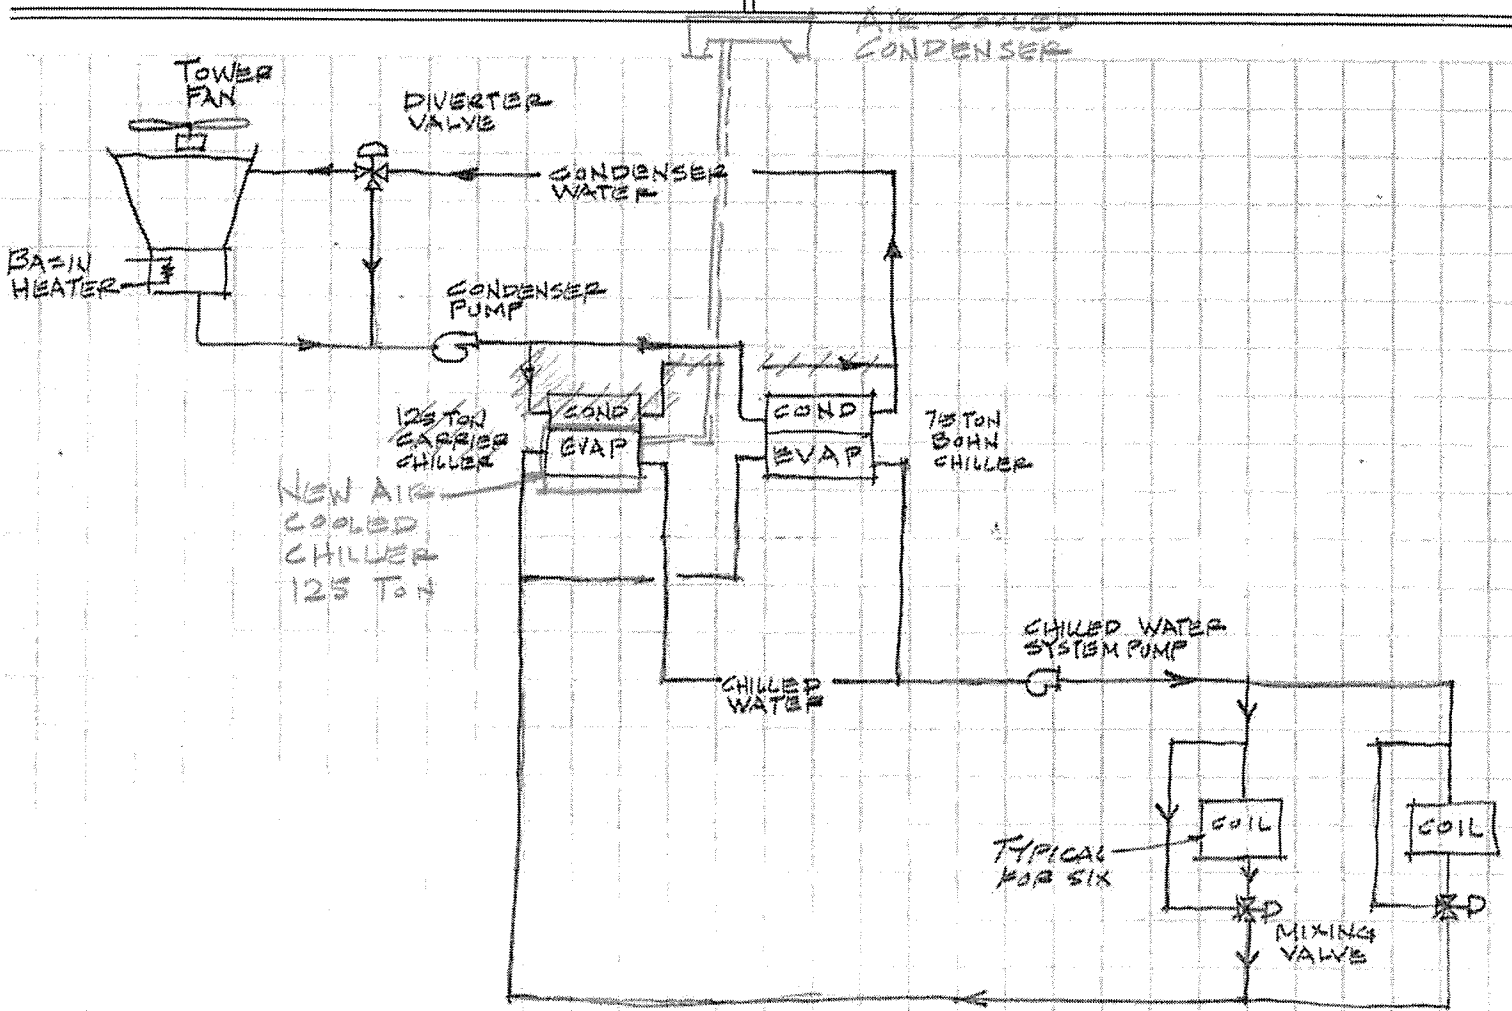 AIR COOLED
CONDENSER
TOWER
FAN
DIVERTER
VALVE
CONDENSER
WATER
BASIN
HEATER
CONDENSER
PUMP
125 TON
CARRIER
CHILLER
COND
EVAP
COND
EVAP
75 TON
BOHN
CHILLER
NEW AIR
COOLED
CHILLER
125 TON
CHILLED WATER
SYSTEM PUMP
CHILLED
WATER
COIL
COIL
TYPICAL
FOR SIX
MIXING
VALVE